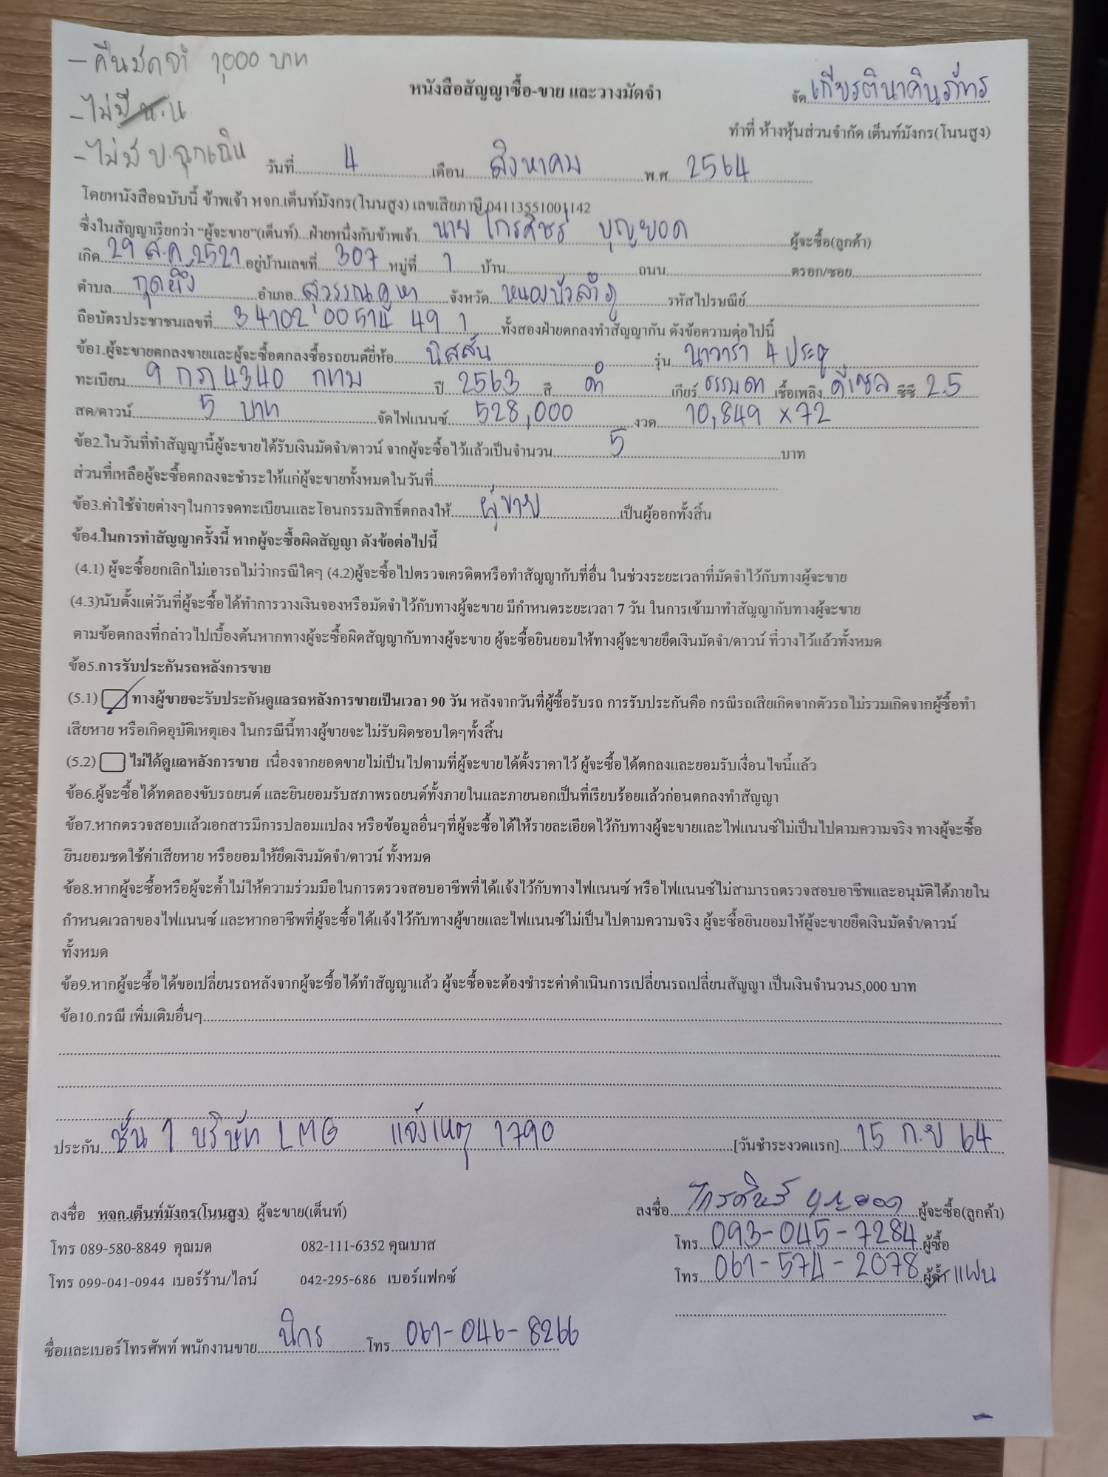 - คืนมัดจำ 1,000 บาท
หนังสือสัญญาซื้อ-ขาย และวางมัดจำ
จัด เกียรตินาคินภัทร
- ไม่มี
ทำที่ ห้างหุ้นส่วนจำกัด เต็นท์มังกร(โนนสูง)
- ไม่มี บ.ฉุกเฉิน
วันที่ 4 เดือน สิงหาคม พ.ศ. 2564
โดยหนังสือฉบับนี้ ข้าพเจ้า หจก.เต็นท์มังกร(โนนสูง) เลขเสียภาษี 0413551001142
ซึ่งในสัญญาเรียกว่า "ผู้จะขาย"(เต็นท์)...ฝ่ายหนึ่งกับข้าพเจ้า นาย ไกรศิษร์ บุญยอด ผู้จะซื้อ(ลูกค้า)
เกิด 29 ส.ค. 2521 อยู่บ้านเลขที่ 307 หมู่ที่ 1 บ้าน ถนน ตรอก/ซอย
ตำบล กุดผึ้ง อำเภอ สุวรรณคูหา จังหวัด หนองบัวลำภู รหัสไปรษณีย์
ถือบัตรประชาชนเลขที่ 3 4102 00514 49 1 ทั้งสองฝ่ายตกลงทำสัญญากัน ดังข้อความต่อไปนี้
ข้อ1.ผู้จะขายตกลงขายและผู้จะซื้อตกลงซื้อรถยนต์ยี่ห้อ นิสสัน รุ่น นาวารา 4 ประตู
ทะเบียน 9 กภ 4340 กทม ปี 2563 สี ดำ เกียร์ ธรรมดา เชื้อเพลิง ดีเซล ซีซี 2.5
สด/ดาวน์ 5 บาท จัดไฟแนนซ์ 528,000 งวด 10,849 x 72
ข้อ2.ในวันที่ทำสัญญานี้ผู้จะขายได้รับเงินมัดจำ/ดาวน์ จากผู้จะซื้อไว้แล้วเป็นจำนวน 5 บาท
ส่วนที่เหลือผู้จะซื้อตกลงจะชำระให้แก่ผู้จะขายทั้งหมดในวันที่
ข้อ3.ค่าใช้จ่ายต่างๆในการจดทะเบียนและโอนกรรมสิทธิ์ตกลงให้ ผู้ขาย เป็นผู้ออกทั้งสิ้น
ข้อ4.ในการทำสัญญาครั้งนี้ หากผู้จะซื้อผิดสัญญา ดังข้อต่อไปนี้
(4.1) ผู้จะซื้อยกเลิกไม่เอารถไม่ว่ากรณีใดๆ (4.2)ผู้จะซื้อไปตรวจเครดิตหรือทำสัญญากับที่อื่น ในช่วงระยะเวลาที่มัดจำไว้กับทางผู้จะขาย
(4.3)นับตั้งแต่วันที่ผู้จะซื้อได้ทำการวางเงินจองหรือมัดจำไว้กับทางผู้จะขาย มีกำหนดระยะเวลา 7 วัน ในการเข้ามาทำสัญญากับทางผู้จะขาย
ตามข้อตกลงที่กล่าวไปเบื้องต้นหากทางผู้จะซื้อผิดสัญญากับทางผู้จะขาย ผู้จะซื้อยินยอมให้ทางผู้จะขายยึดเงินมัดจำ/ดาวน์ ที่วางไว้แล้วทั้งหมด
ข้อ5.การรับประกันรถหลังการขาย
(5.1) ทางผู้ขายจะรับประกันดูแลรถหลังการขายเป็นเวลา 90 วัน หลังจากวันที่ผู้ซื้อรับรถ การรับประกันคือ กรณีรถเสียเกิดจากตัวรถไม่รวมเกิดจากผู้ซื้อทำ
เสียหาย หรือเกิดอุบัติเหตุเอง ในกรณีนี้ทางผู้ขายจะไม่รับผิดชอบใดๆทั้งสิ้น
(5.2) ไม่ได้ดูแลหลังการขาย เนื่องจากยอดขายไม่เป็นไปตามที่ผู้จะขายได้ตั้งราคาไว้ ผู้จะซื้อได้ตกลงและยอมรับเงื่อนไขนี้แล้ว
ข้อ6.ผู้จะซื้อได้ทดลองขับรถยนต์ และยินยอมรับสภาพรถยนต์ทั้งภายในและภายนอกเป็นที่เรียบร้อยแล้วก่อนตกลงทำสัญญา
ข้อ7.หากตรวจสอบแล้วเอกสารมีการปลอมแปลง หรือข้อมูลอื่นๆที่ผู้จะซื้อได้ให้รายละเอียดไว้กับทางผู้จะขายและไฟแนนซ์ไม่เป็นไปตามความจริง ทางผู้จะซื้อ
ยินยอมชดใช้ค่าเสียหาย หรือยอมให้ยึดเงินมัดจำ/ดาวน์ ทั้งหมด
ข้อ8.หากผู้จะซื้อหรือผู้จะค้ำไม่ให้ความร่วมมือในการตรวจสอบอาชีพที่ได้แจ้งไว้กับทางไฟแนนซ์ หรือไฟแนนซ์ไม่สามารถตรวจสอบอาชีพและอนุมัติได้ภายใน
กำหนดเวลาของไฟแนนซ์ และหากอาชีพที่ผู้จะซื้อได้แจ้งไว้กับทางผู้ขายและไฟแนนซ์ไม่เป็นไปตามความจริง ผู้จะซื้อยินยอมให้ผู้จะขายยึดเงินมัดจำ/ดาวน์
ทั้งหมด
ข้อ9.หากผู้จะซื้อได้ขอเปลี่ยนรถหลังจากผู้จะซื้อได้ทำสัญญาแล้ว ผู้จะซื้อจะต้องชำระค่าดำเนินการเปลี่ยนรถเปลี่ยนสัญญา เป็นเงินจำนวน5,000 บาท
ข้อ10.กรณี เพิ่มเติมอื่นๆ
ประกัน ชั้น 1 บริษัท LMG แจ้งเหตุ 1790 [วันชำระงวดแรก] 15 ก.ย 64
ลงชื่อ หจก.เต็นท์มังกร(โนนสูง) ผู้จะขาย(เต็นท์)
ลงชื่อ ไกรศิษร์ บุญยอด ผู้จะซื้อ(ลูกค้า)
โทร 089-580-8849 คุณมด 082-111-6352 คุณบาส
โทร 093-045-7284 ผู้ซื้อ
โทร 099-041-0944 เบอร์ร้าน/ไลน์ 042-295-686 เบอร์แฟกซ์
โทร 061-574-2078 ผู้ค้ำ แฟน
ชื่อและเบอร์โทรศัพท์ พนักงานขาย นิกร โทร 061-046-8266